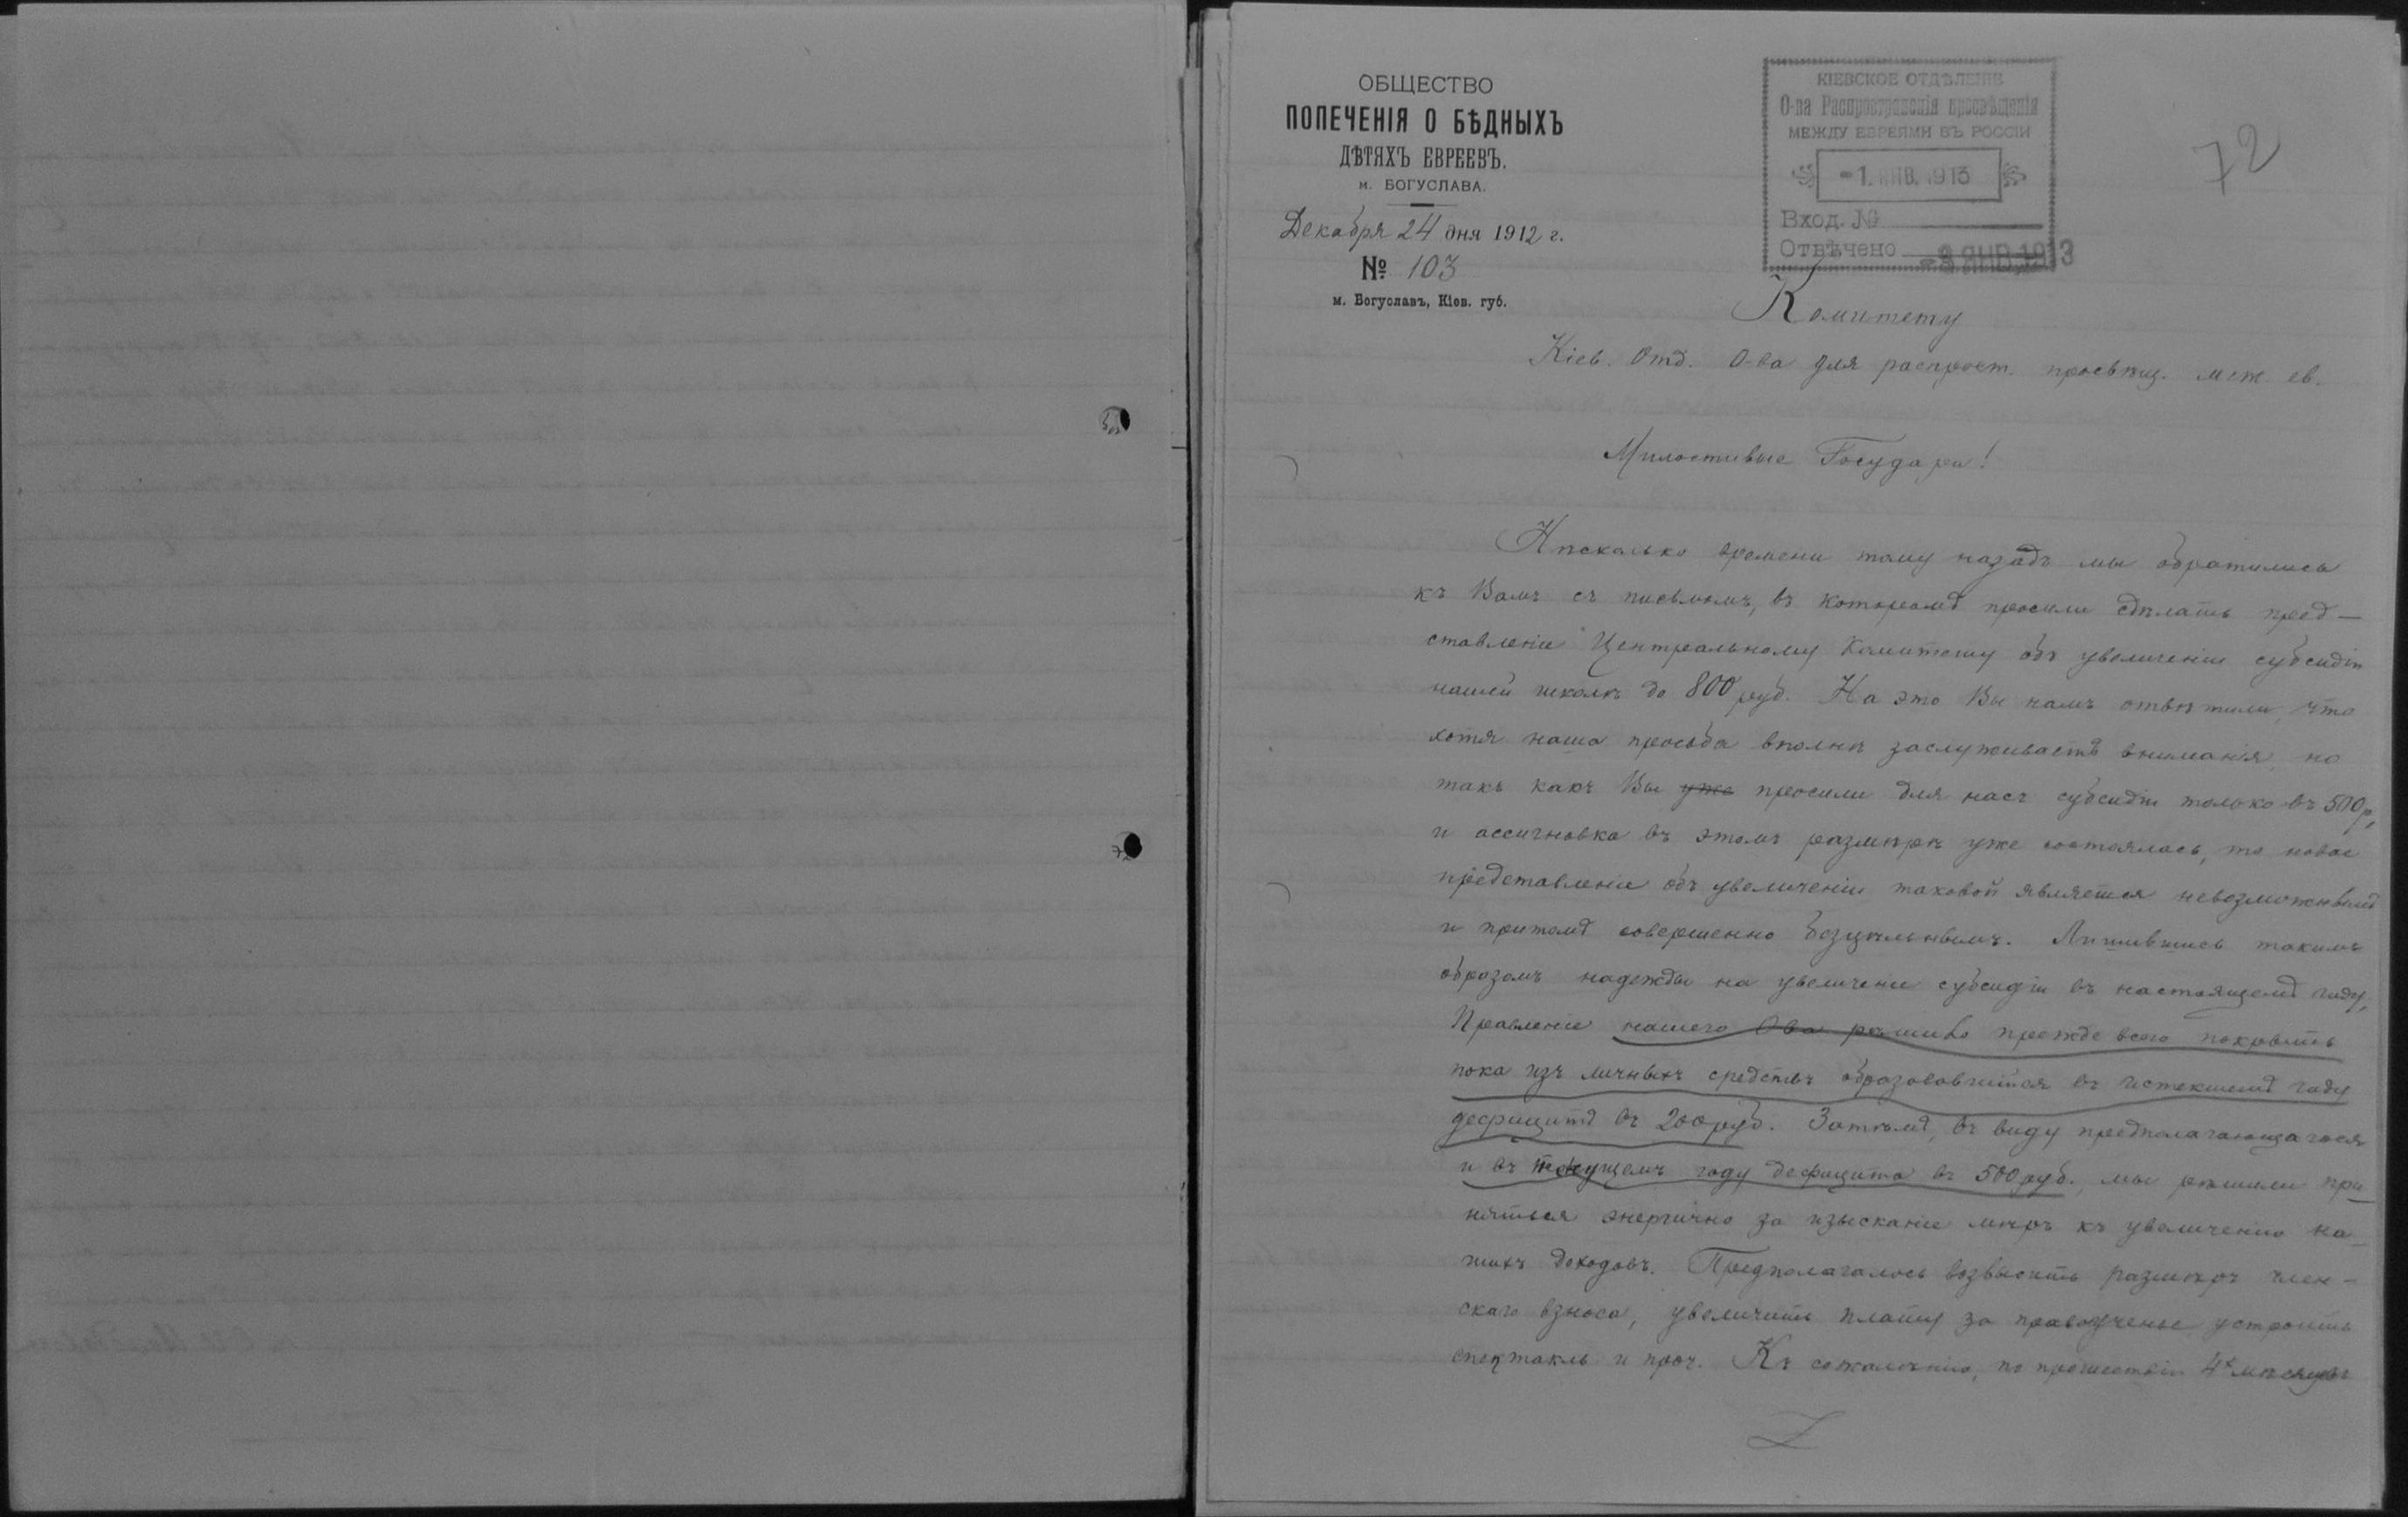 ОБЩЕСТВО
ПОПЕЧЕНІЯ О БѢДНЫХЪ
ДѢТЯХЪ ЕВРЕЕВЪ.
м. БОГУСЛАВА.
Декабря 24 дня 1912 г.
№ 103
м. Богуславъ, Кіев. губ.
КІЕВСКОЕ ОТДѢЛЕНІЕ
О-ва Распространенія просвѣщенія
МЕЖДУ ЕВРЕЯМИ ВЪ РОССІИ
-1. ЯНВ. 1913
Вход. №
Отвѣчено -9 ЯНВ. 1913
72
Комитету
Кіев. Отд. О-ва для распрост. просвѣщ. меж. ев.
Милостивые Государи!
Нѣсколько времени тому назадъ мы обратились
къ Вамъ съ письмомъ, въ которомъ просили сдѣлать пред-
ставленіе Центральному Комитету объ увеличеніи субсидіи
нашей школѣ до 800 руб. На это Вы намъ отвѣтили, что
хотя наша просьба вполнѣ заслуживаетъ вниманія, но
такъ какъ Вы уже просили для насъ субсидіи только въ 500 р,
и ассигновка въ этомъ размѣрѣ уже состоялась, то новое
представленіе объ увеличеніи таковой является невозможнымъ
и притомъ совершенно безцѣльнымъ. Лишившись такимъ
образомъ надежды на увеличеніе субсидіи въ настоящемъ году,
Правленіе нашего О-ва рѣшило прежде всего покрыть
пока изъ личныхъ средствъ образовавшійся въ истекшемъ году
дефицитъ въ 200 руб. Затѣмъ, въ виду предполагающагося
и въ текущемъ году дефицита въ 500 руб., мы рѣшили при-
няться энергично за изысканіе мѣръ къ увеличенію на-
шихъ доходовъ. Предполагалось возвысить размѣръ член-
скаго взноса, увеличить плату за правоученье устроить
спектакль и проч. Къ сожалѣнію, по прошествіи 4х мѣсяцевъ